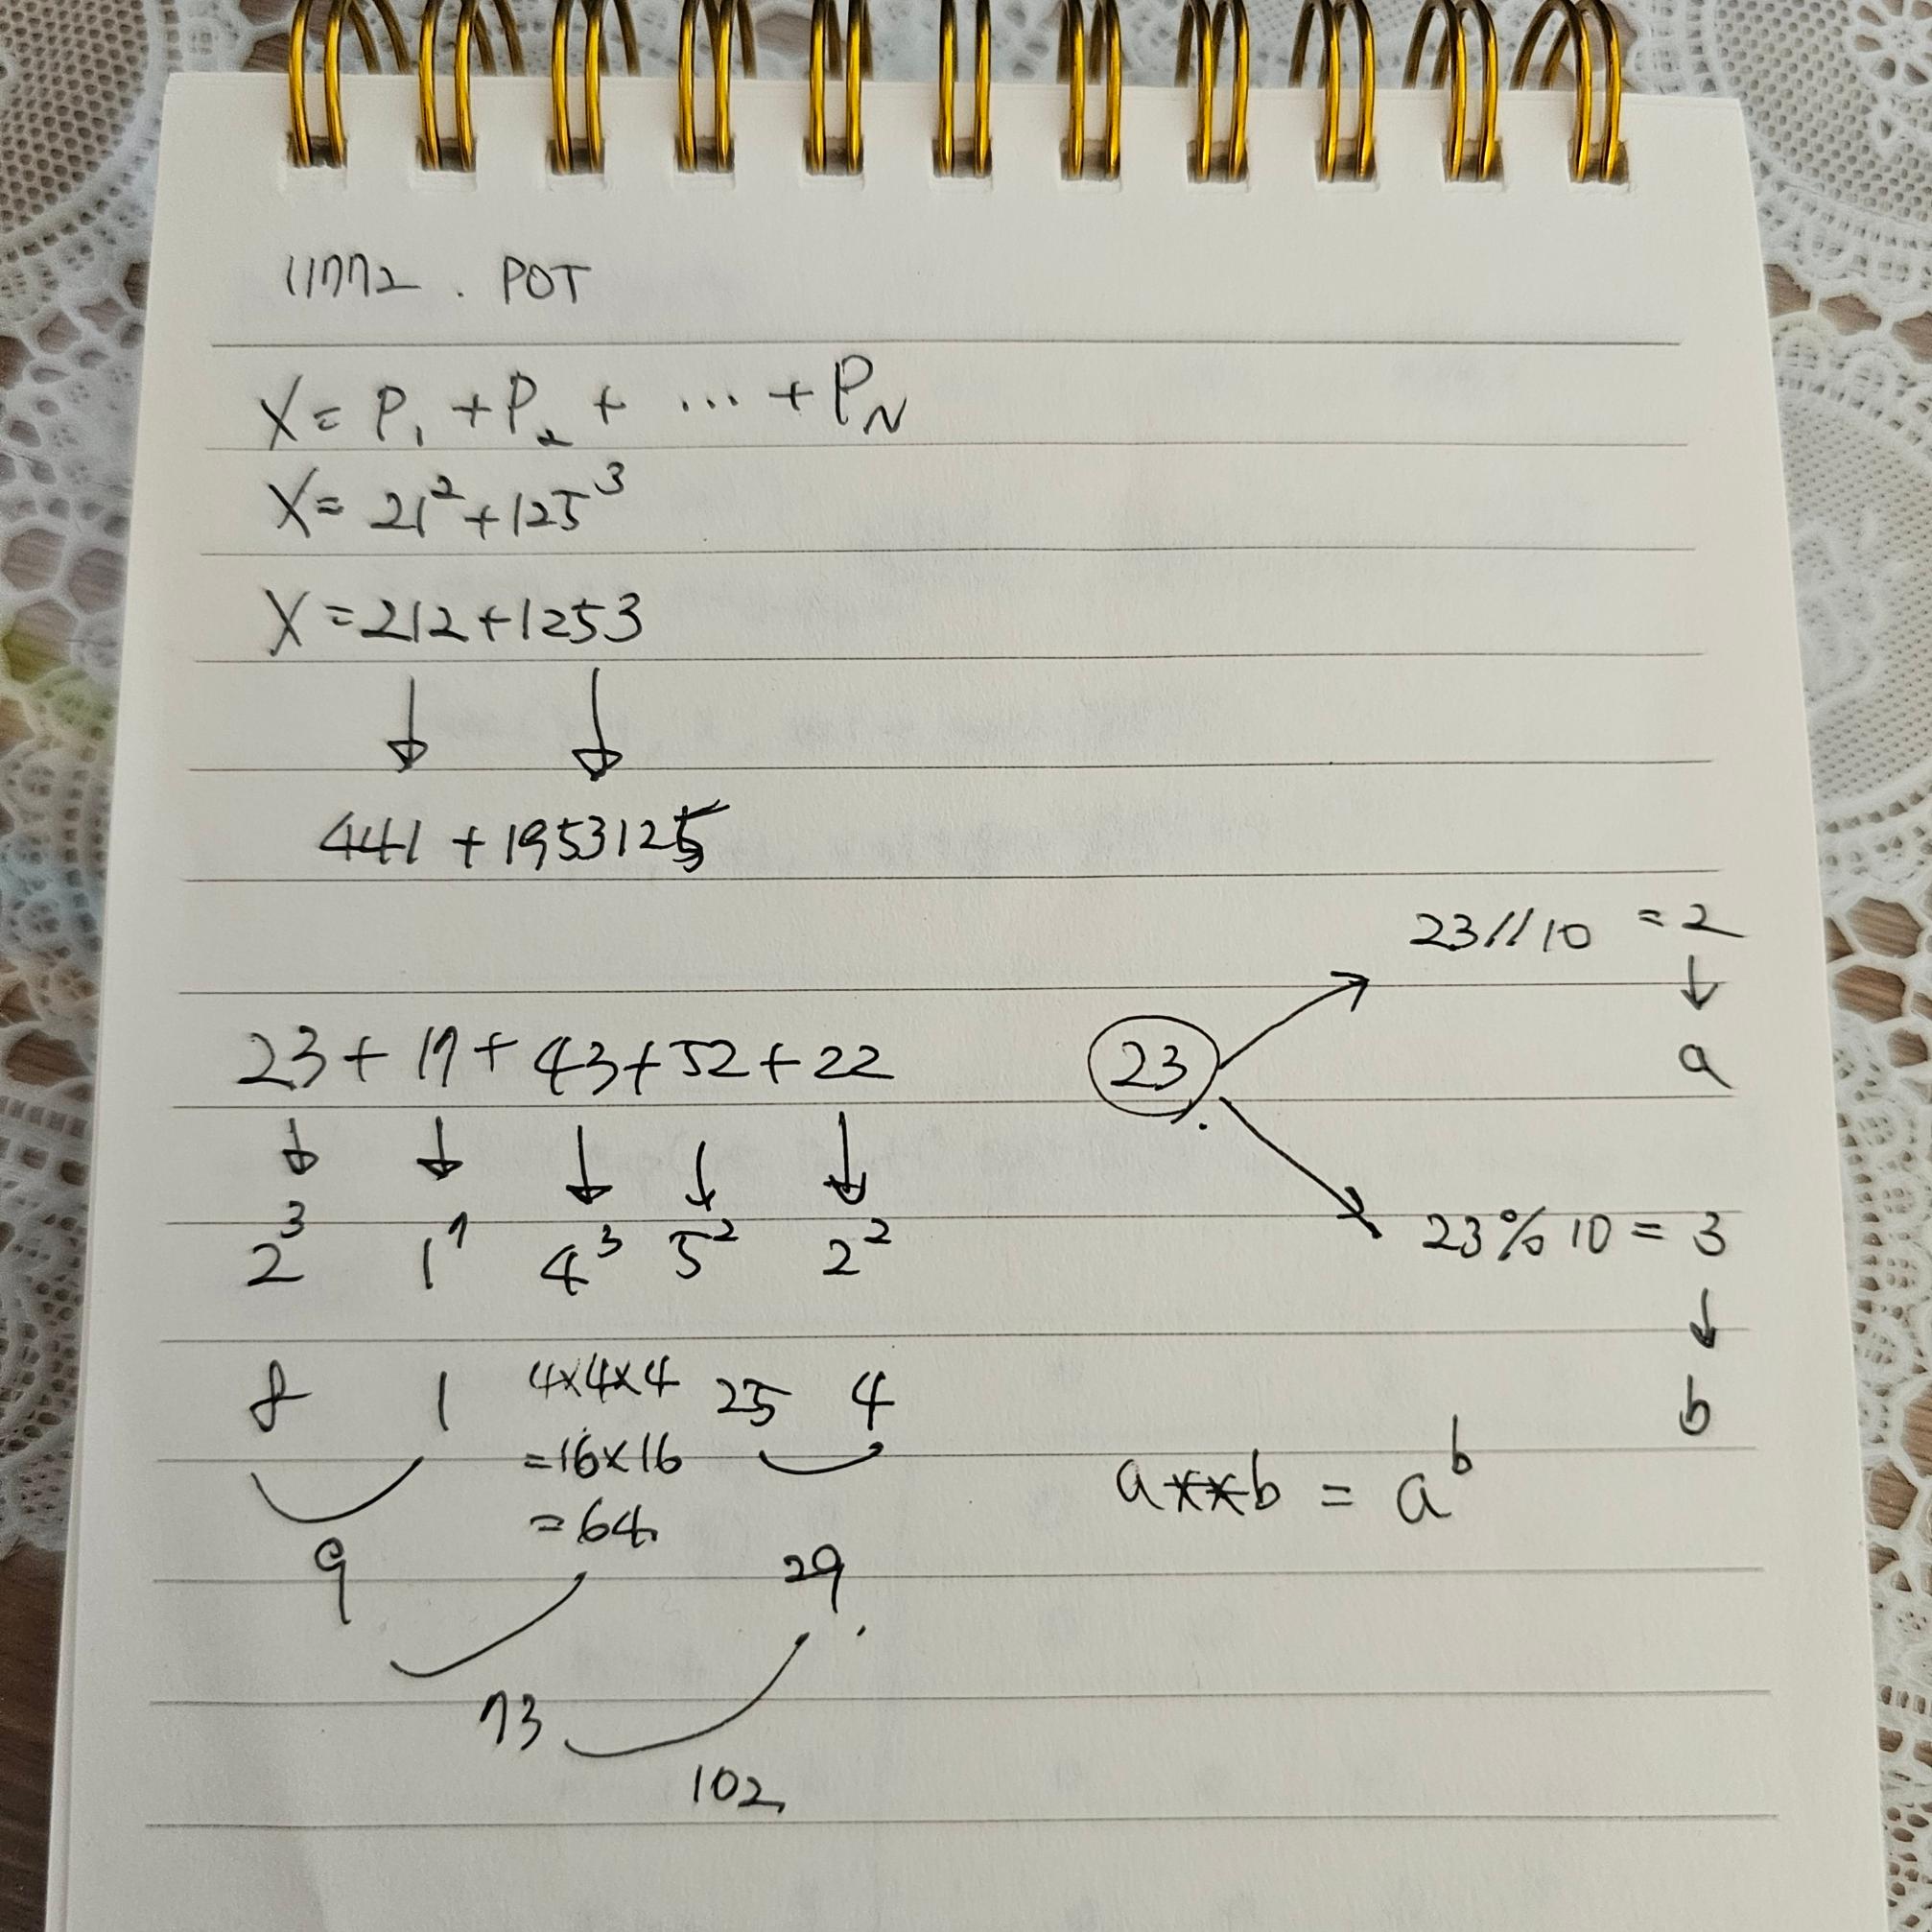 11772. POT
X = P₁ + P₂ + ... + P_N
X = 21² + 125³
X = 212 + 1253
↓ ↓
441 + 1953125
23 + 17 + 43 + 52 + 22
↓ ↓ ↓ ↓ ↓
2³ 1⁷ 4³ 5² 2²
8 1 4×4×4 25 4
=16×16
=64
9 29
73
102
23//10 = 2
↓
a
23
23%10 = 3
↓
b
a**b = aᵇ